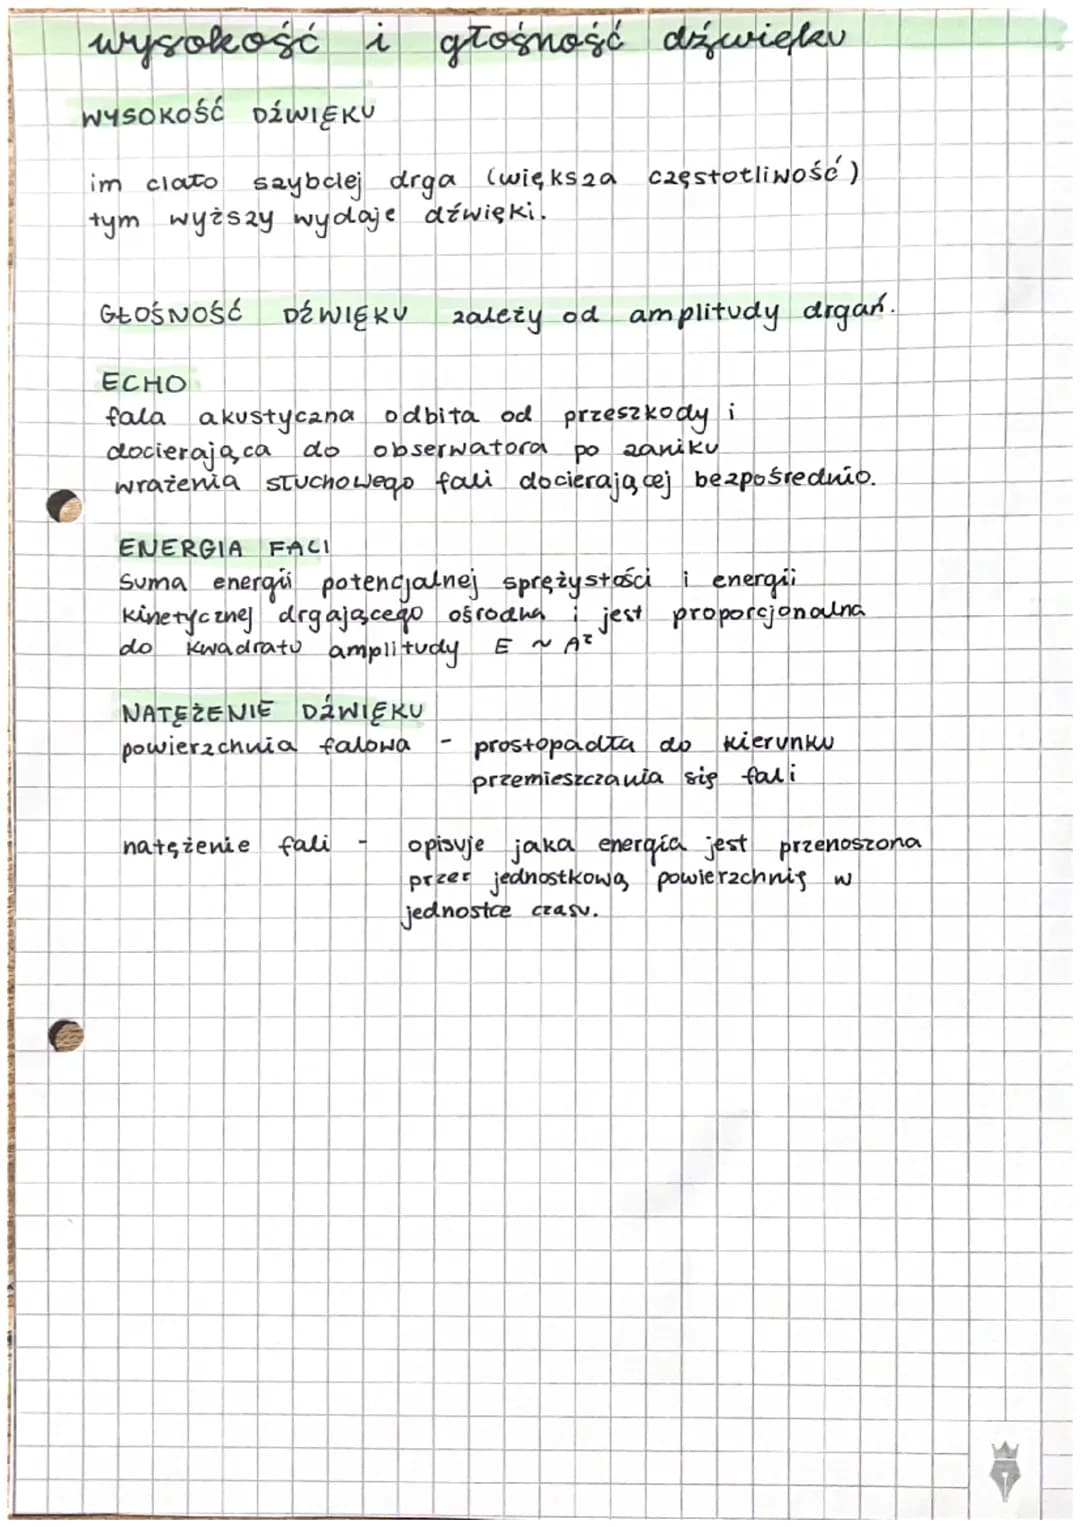 wysokość i głośność dźwięku
WYSOKOŚĆ DŹWIĘKU
im ciało szybciej drga (większa częstotliwość)
tym wyższy wydaje dźwięki.
GŁOŚNOŚĆ DŹWIĘKU zależy od amplitudy drgań.
ECHO
fala akustyczna odbita od przeszkody i
docierająca do obserwatora po zaniku
wrażenia słuchowego fali docierającej bezpośrednio.
ENERGIA FALI
suma energii potencjalnej sprężystości i energii
kinetycznej drgającego ośrodka i jest proporcjonalna
do kwadratu amplitudy E ~ A²
NATĘŻENIE DŹWIĘKU
powierzchnia falowa - prostopadła do kierunku
przemieszczania się fali
natężenie fali - opisuje jaka energia jest przenoszona
przez jednostkową powierzchnię w
jednostce czasu.